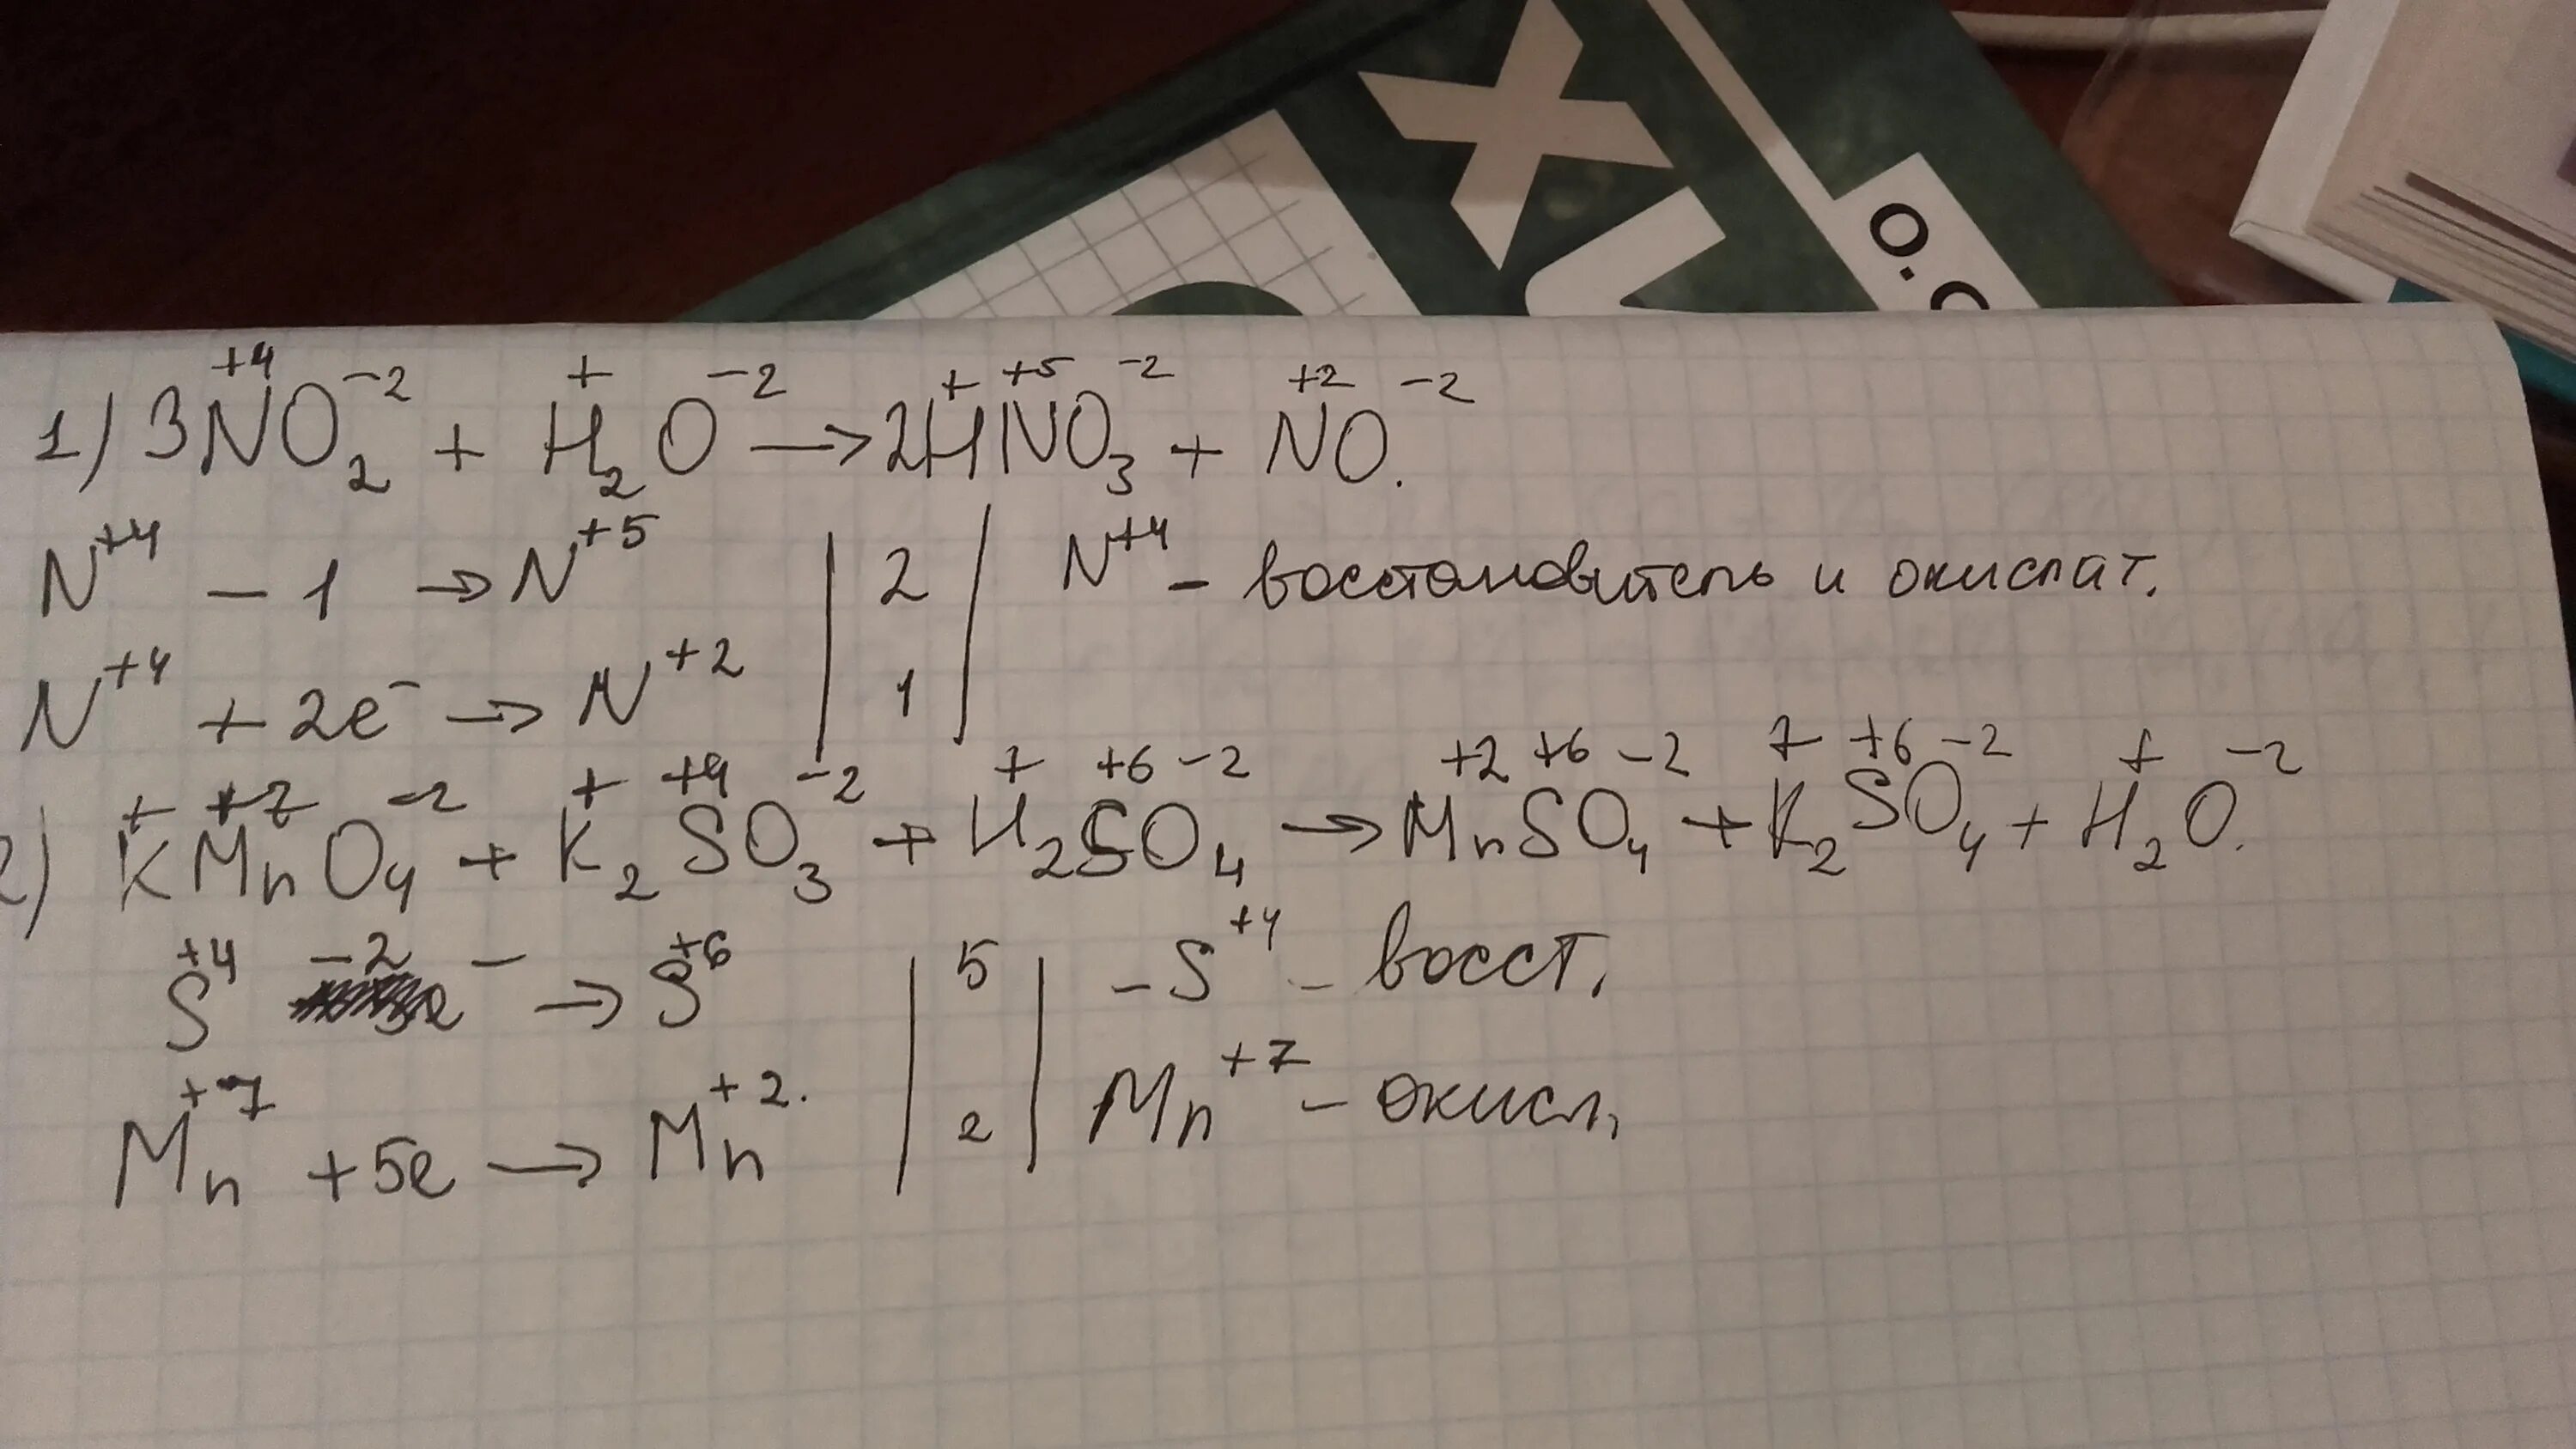 О.С
1) 3N⁺⁴O₂⁻² + H₂⁺O⁻² → 2H⁺N⁺⁵O₃⁻² + N⁺²O⁻².
N⁺⁴ - 1 → N⁺⁵ | 2 | N⁺⁴ - восстановитель и окислат.
N⁺⁴ + 2e⁻ → N⁺² | 1 |
2) K⁺Mn⁺⁷O₄⁻² + K₂⁺S⁺⁴O₃⁻² + H₂⁺S⁺⁶O₄⁻² → Mn⁺²S⁺⁶O₄⁻² + K₂⁺S⁺⁶O₄⁻² + H₂⁺O⁻².
S⁺⁴ -2e⁻ → S⁺⁶ | 5 | - S⁺⁴ - восст.
Mn⁺⁷ +5e → Mn⁺². | 2 | Mn⁺⁷ - окисл,